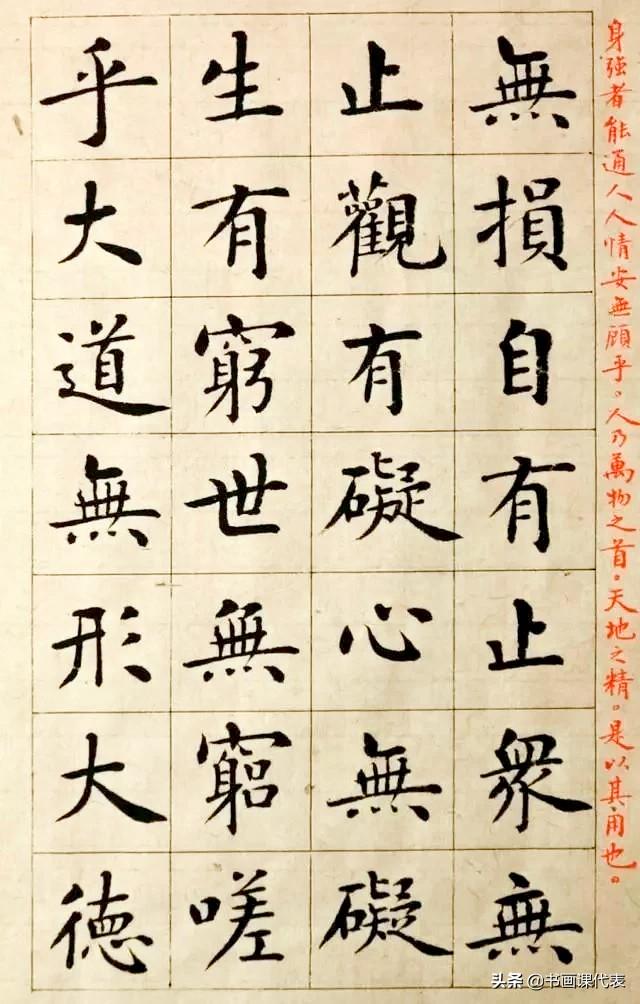 身強者能通人人情安無顧乎。人乃萬物之首。天地之精。是以其用也。
無損自有止衆無
止觀有礙心無礙
生有窮世無窮嗟
乎大道無形大德
头条 @书画课代表